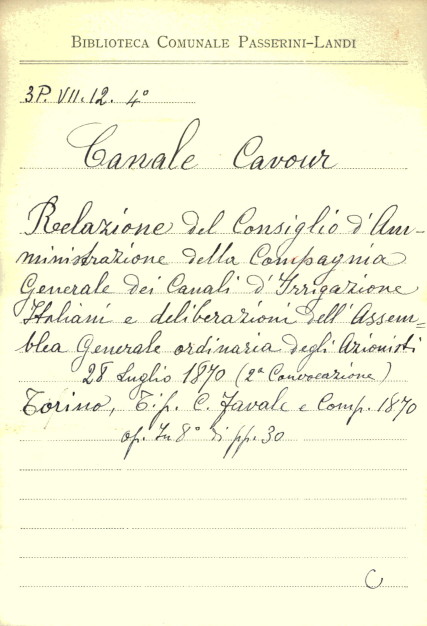 BIBLIOTECA COMUNALE PASSERINI-LANDI
3P. VII. 12. 4°
Canale Cavour
Relazione del Consiglio d'Am-
ministrazione della Compagnia
Generale dei Canali d'Irrigazione
Italiani e deliberazioni dell'Assem=
blea Generale ordinaria degli Azionisti
28 Luglio 1870 (2ª Convocazione)
Torino, Tip. C. Favale e Comp. 1870
op. In 8° di pp. 30
C